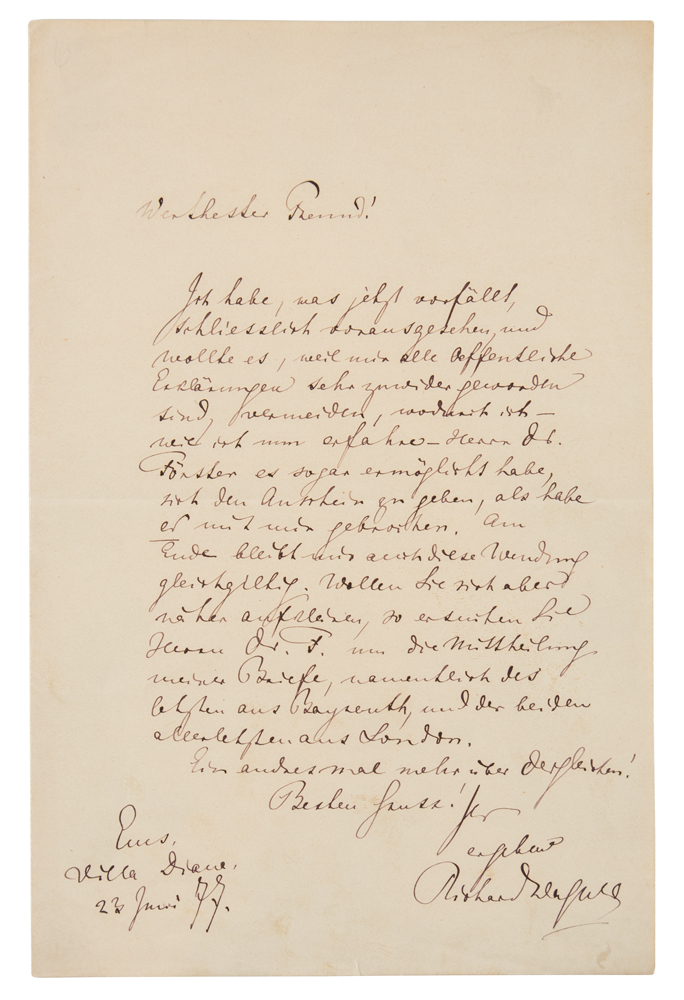 Werthester Freund!
Ich habe, was jetzt vorfällt,
schliesslich vorausgesehen, und
wollte es, weil mir alle öffentliche
Erklärungen sehr zuwider geworden
sind, vermeiden, wodurch ich –
wie ich nun erfahre – Herrn Dr.
Förster es sogar ermöglicht habe,
sich den Anschein zu geben, als habe
er mit mir gebrochen. Am
Ende bleibt mir auch diese Wendung
gleichgiltig. Wollen Sie sich aber
näher aufklären, so ersuchen Sie
Herrn Dr. F. um die Mittheilung
meiner Briefe, namentlich des
letzten aus Bayreuth, und der beiden
allerletzten aus London.
Ein andres mal mehr über dergleichen!
Besten Gruss! Ihr
ergebener
Richard Wagner
Ems,
Villa Diana,
23 Juni 77.